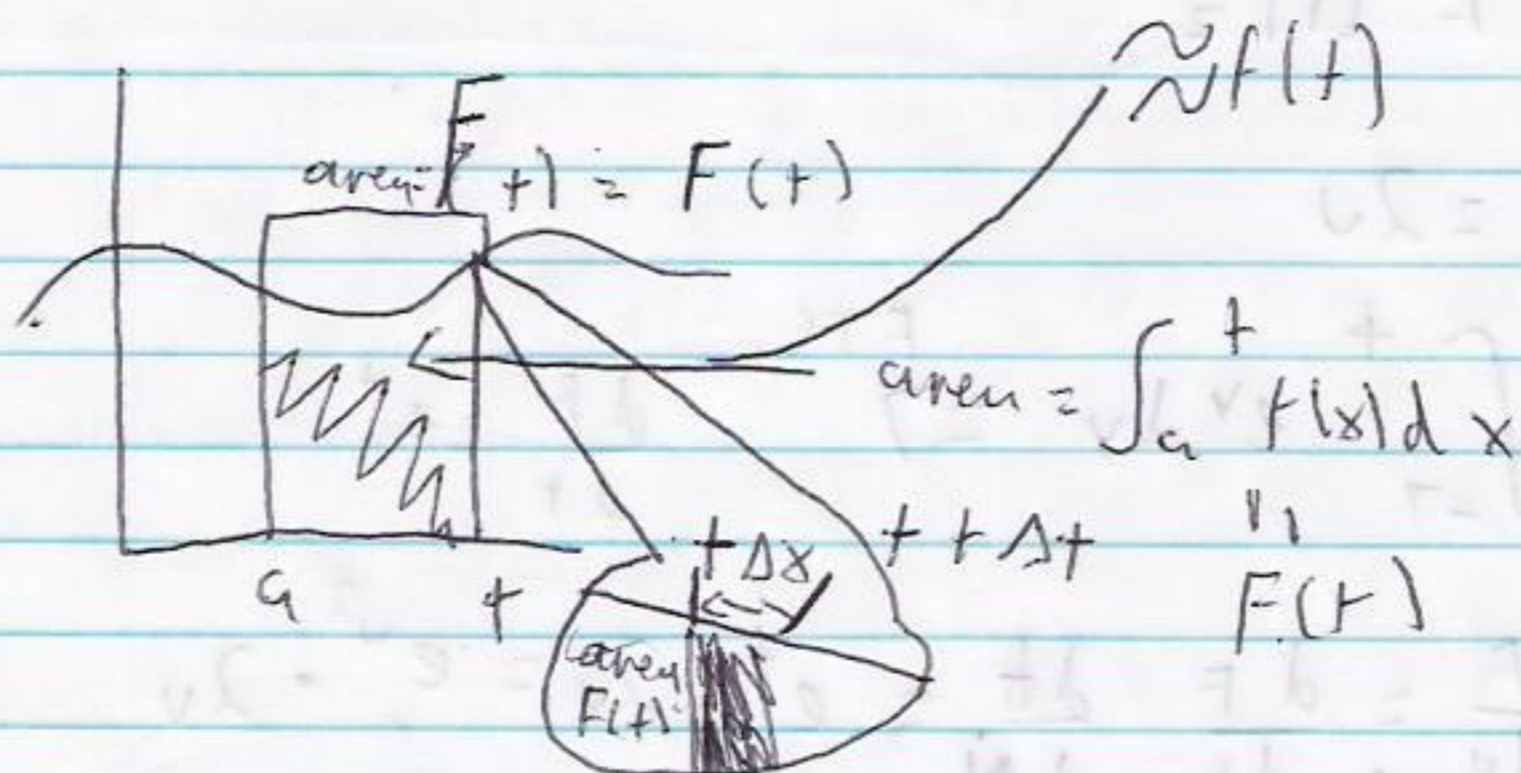 ≈ f(t)
area = F(t) = F(t)
area = ∫ₐᵗ f(x) dx
a t
t Δx t + Δt
"
F(t)
area
F(t)